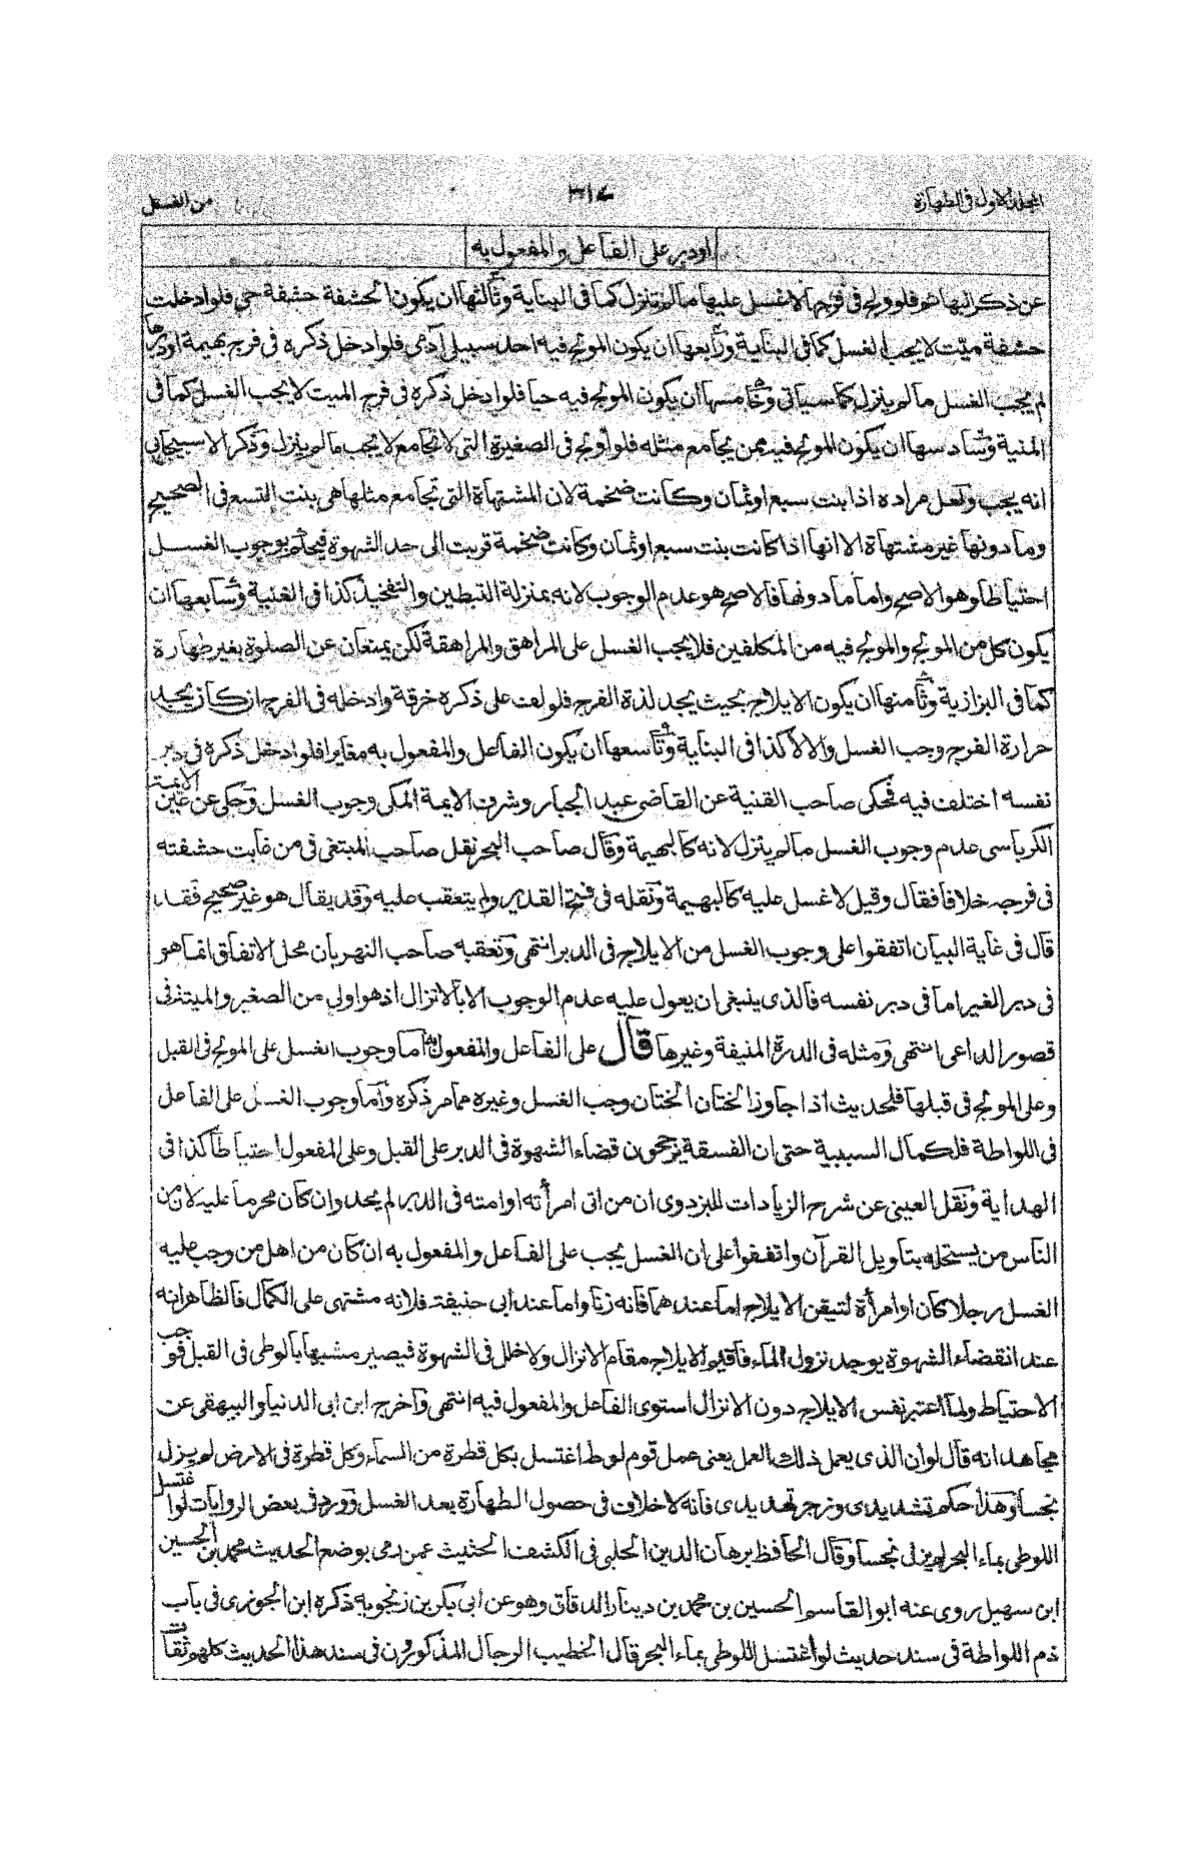 المجلد الاول فى الطهارة
٣١٧
من الغسل
اودبر على الفاعل والمفعول به
عن ذكر البهائم فلو ولج فى فرجها لا غسل عليها مالم تنزل كما فى البناية وثالثها ان يكون الحشفة حشفة حى فلو ادخلت
حشفة ميت لا يجب الغسل كما فى البناية ورابعها ان يكون المولج فيه احد سبيلى آدمى فلو ادخل ذكره فى فرج بهيمة اودبرها
لم يجب الغسل مالم ينزل كما سياتى وخامسها ان يكون المولج فيه حيا فلو ادخل ذكره فى فرج الميت لا يجب الغسل كما فى
المنية وسادسها ان يكون المولج فيه ممن يجامع مثله فلو أولج فى الصغيرة التى لا تجامع لا يجب مالم ينزل وذكر الاسبيجابى
انه يجب ولعل مراده اذا بنت سبع اوثمان وكانت ضخمة لان المشتهاة التى تجامع مثلها هى بنت التسع فى الصحيح
وما دونها غير مشتهاة الا انها اذا كانت بنت سبع اوثمان وكانت ضخمة قربت الى حد الشهوة فيحكم بوجوب الغسل
احتياطا وهو الاصح واما ما دونها فالاصح هو عدم الوجوب لانه بمنزلة التبطين والتفخيذ كذا فى الغنية وسابعها ان
يكون كل من المولج والمولج فيه من المكلفين فلا يجب الغسل على المراهق والمراهقة لكن يمنعان عن الصلوة بغير طهارة
كما فى البزازية وثامنها ان يكون الايلاج بحيث يجد لذة الفرج فلو لف على ذكره خرقة وادخله فى الفرج ان كان يجد
حرارة الفرج وجب الغسل والا لا كذا فى البناية وتاسعها ان يكون الفاعل والمفعول به مغايرا فلو ادخل ذكره فى دبر
نفسه اختلف فيه فحكى صاحب القنية عن القاضى عبد الجبار وشرف الايمة المكى وجوب الغسل وحكى عن عين الايمة
الكرباسى عدم وجوب الغسل مالم ينزل لانه كالبهيمة وقال صاحب البحر نقل صاحب المبتغى فى من غابت حشفته
فى فرجه خلافا فقال وقيل لا غسل عليه كالبهيمة ونقله فى فتح القدير ولم يتعقب عليه وقد يقال هو غير صحيح فقد
قال فى غاية البيان اتفقوا على وجوب الغسل من الايلاج فى الدبر انتهى وتعقبه صاحب النهر بان محل الاتفاق انما هو
فى دبر الغير اما فى دبر نفسه فالذى ينبغى ان يعول عليه عدم الوجوب الا بالانزال اذ هو اولى من الصغير والميتة فى
قصور الداعى انتهى ومثله فى الدرة المنيفة وغيرها قال على الفاعل والمفعول به اما وجوب الغسل على المولج فى القبل
وعلى المولج فى قبلها فلحديث اذا جاوز الختان الختان وجب الغسل وغيره مما مر ذكره واما وجوب الغسل على الفاعل
فى اللواطة فلكمال السببية حتى ان الفسقة يرجحون قضاء الشهوة فى الدبر على القبل وعلى المفعول احتياطا كذا فى
الهداية ونقل العينى عن شرح الزيادات للبزدوى ان من اتى امرأته اوامته فى الدبر لم يحد وان كان محرما عليه لان من
الناس من يستحله بتاويل القرآن واتفقوا على ان الغسل يجب على الفاعل والمفعول به ان كان من اهل من وجب عليه
الغسل رجلا كان اوامرأة لتيقن الايلاج اما عندهما فانه زنا واما عند ابى حنيفة فلانه مشتهى على الكمال فالظاهر انه
عند انقضاء الشهوة يوجد نزول الماء فاقيم الايلاج مقام الانزال ولا خلل فى الشهوة فيصير مشبها بالوطى فى القبل فوجب
الاحتياط ولما اعتبر نفس الايلاج دون الانزال استوى الفاعل والمفعول فيه انتهى واخرج ابن ابى الدنيا والبيهقى عن
مجاهد انه قال لو ان الذى يعمل ذلك العمل يعنى عمل قوم لوط اغتسل بكل قطرة من السماء وكل قطرة فى الارض لم يزل
نجسا وهذا حكم تشديدى وزجر تهديدى فانه لا خلاف فى حصول الطهارة بعد الغسل وورد فى بعض الروايات لو اغتسل
اللوطى بماء البحر لم يزل نجسا وقال الحافظ برهان الدين الحلبى فى الكشف الحثيث عمن رمى بوضع الحديث محمد بن الحسين
ابن سهيل روى عنه ابو القاسم الحسين بن محمد بن دينار الدقاق وهو عن ابى بكر بن زنجويه ذكره ابن الجوزى فى باب
ذم اللواطة فى سند حديث لو اغتسل اللوطى بماء البحر قال الخطيب الرجال المذكورون فى سند هذا الحديث كلهم ثقات